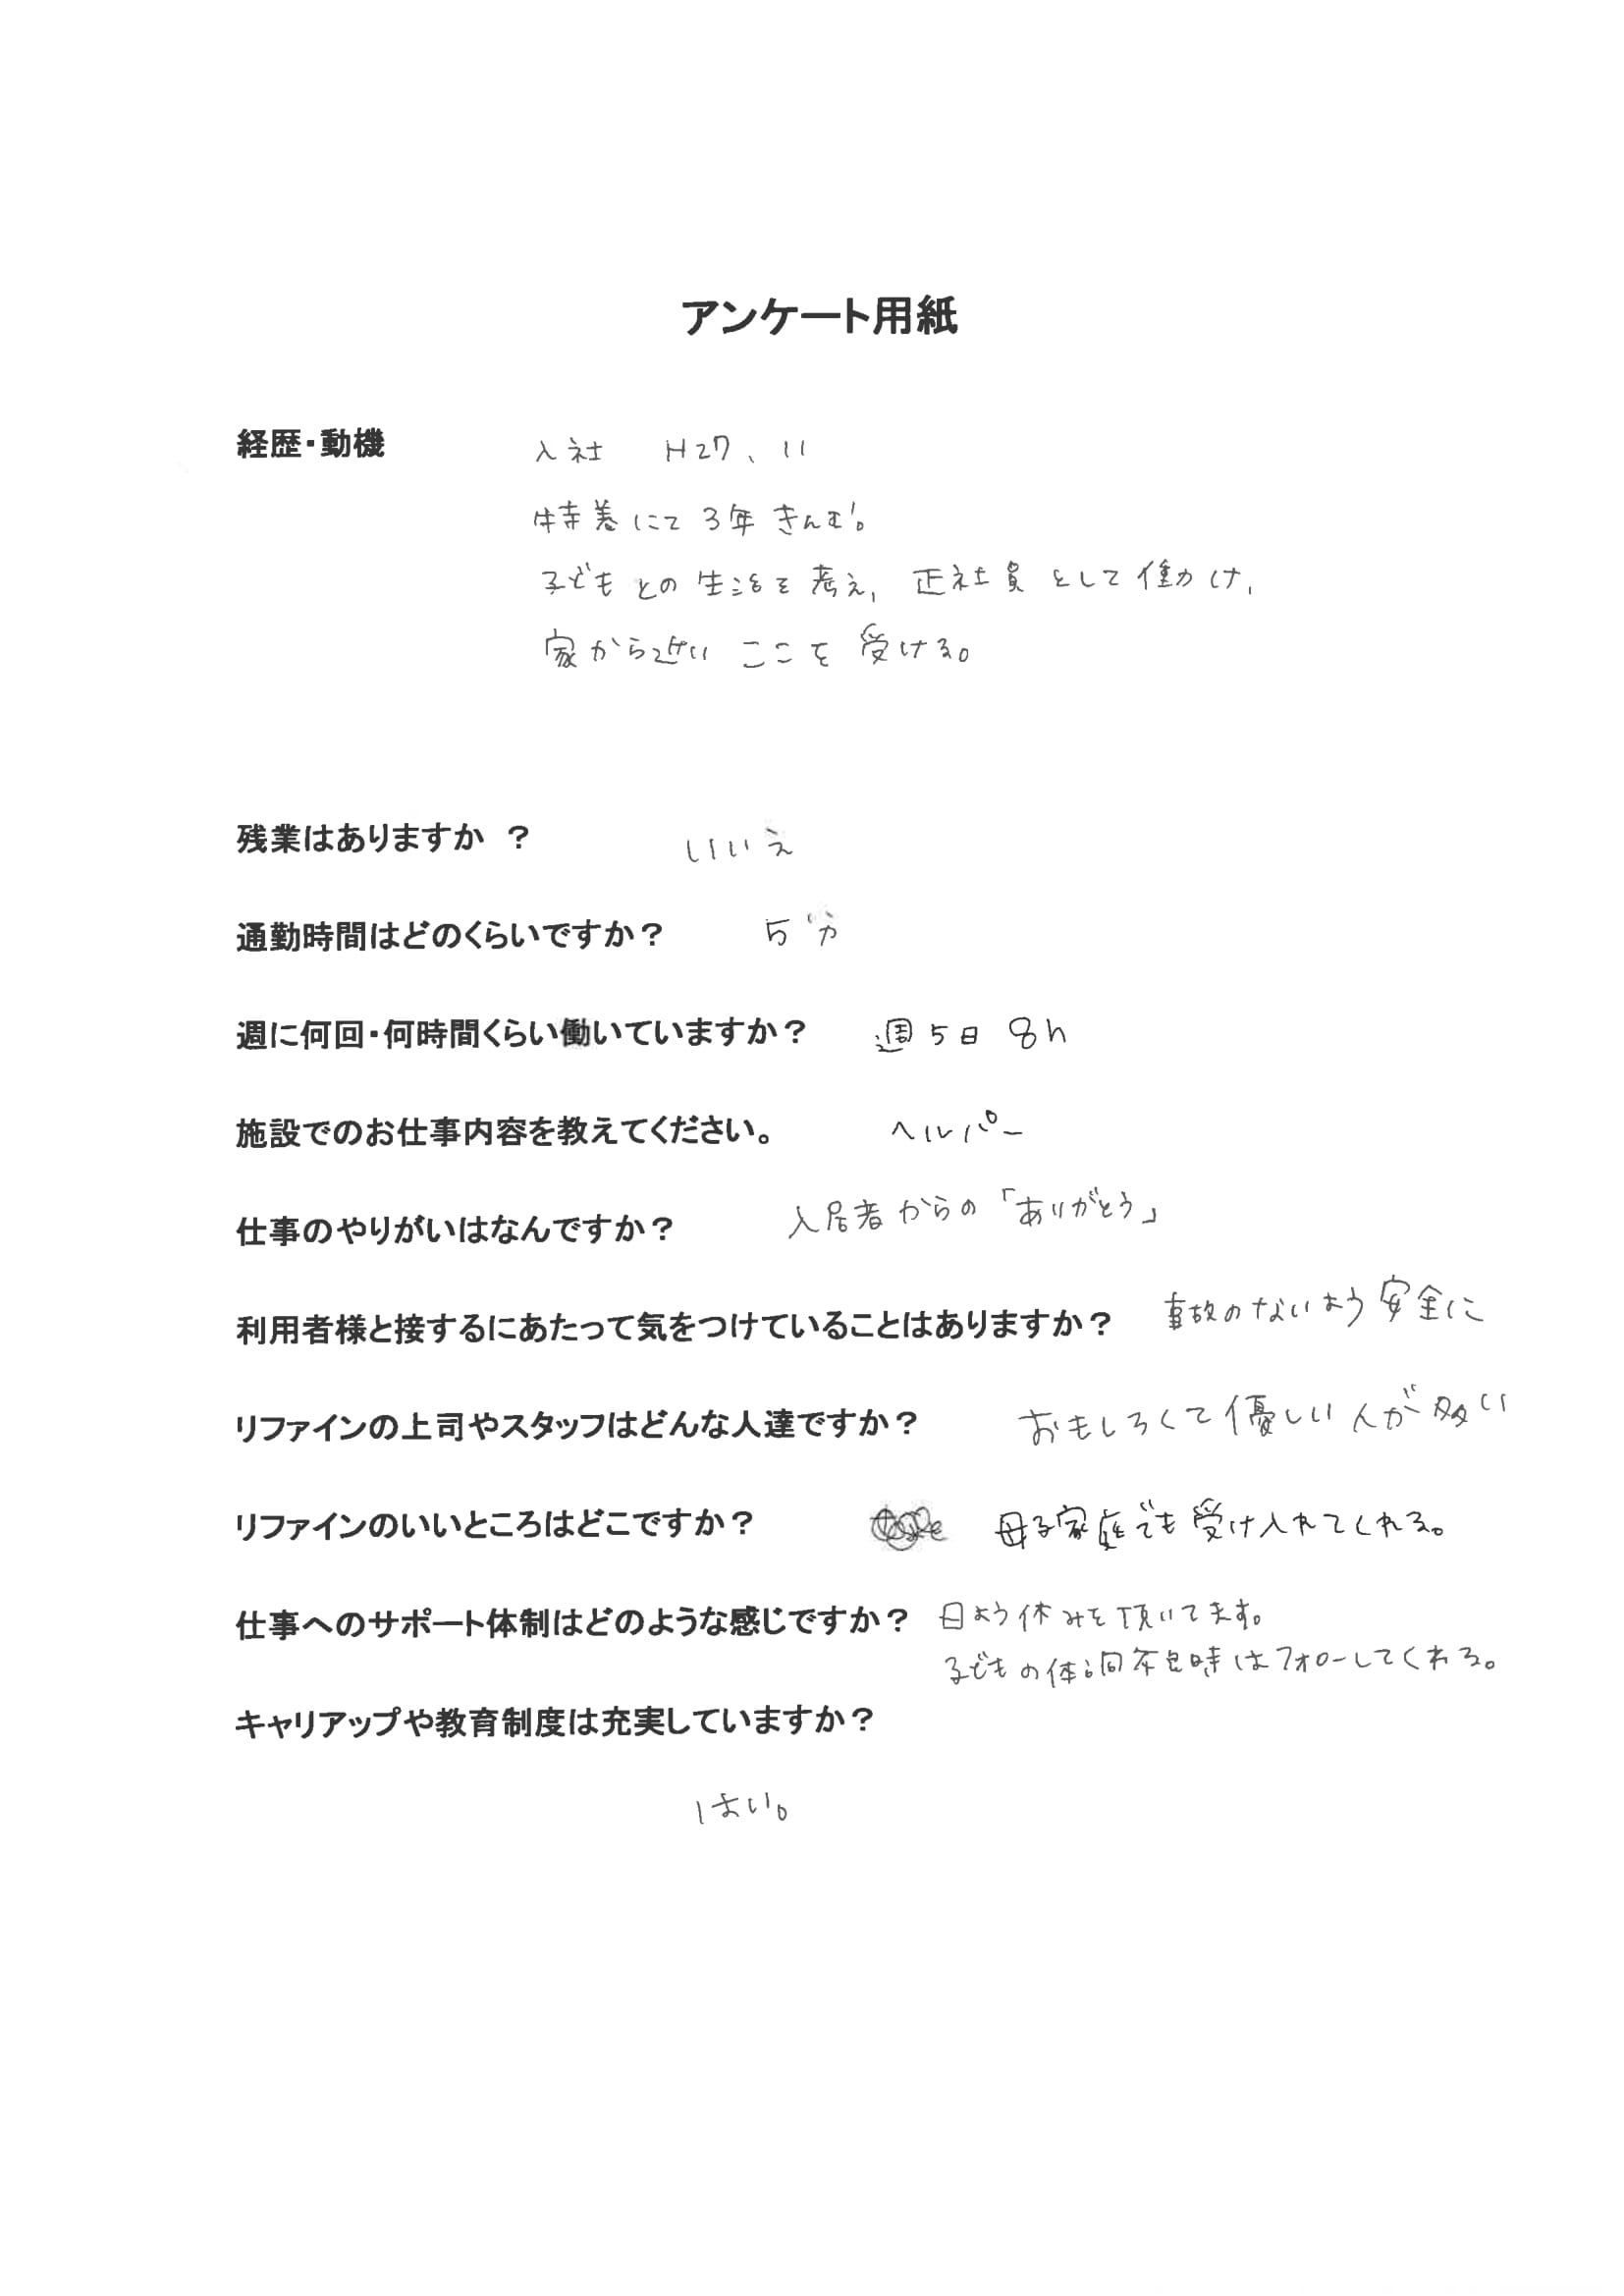 アンケート用紙
経歴・動機 入社 H27、11
特養にて3年きんむ。
子どもとの生活を考え、正社員として働かけ、
家から近いここを受ける。
残業はありますか ? いいえ
通勤時間はどのくらいですか? 5分
週に何回・何時間くらい働いていますか? 週5日 8h
施設でのお仕事内容を教えてください。 ヘルパー
仕事のやりがいはなんですか? 入居者からの「ありがとう」
利用者様と接するにあたって気をつけていることはありますか? 事故のないよう安全に
リファインの上司やスタッフはどんな人達ですか? おもしろくて優しい人が多い
リファインのいいところはどこですか? 母子家庭でも受け入れてくれる。
仕事へのサポート体制はどのような感じですか? 日よう休みを頂いてます。
子どもの体調不良時はフォローしてくれる。
キャリアップや教育制度は充実していますか?
はい。